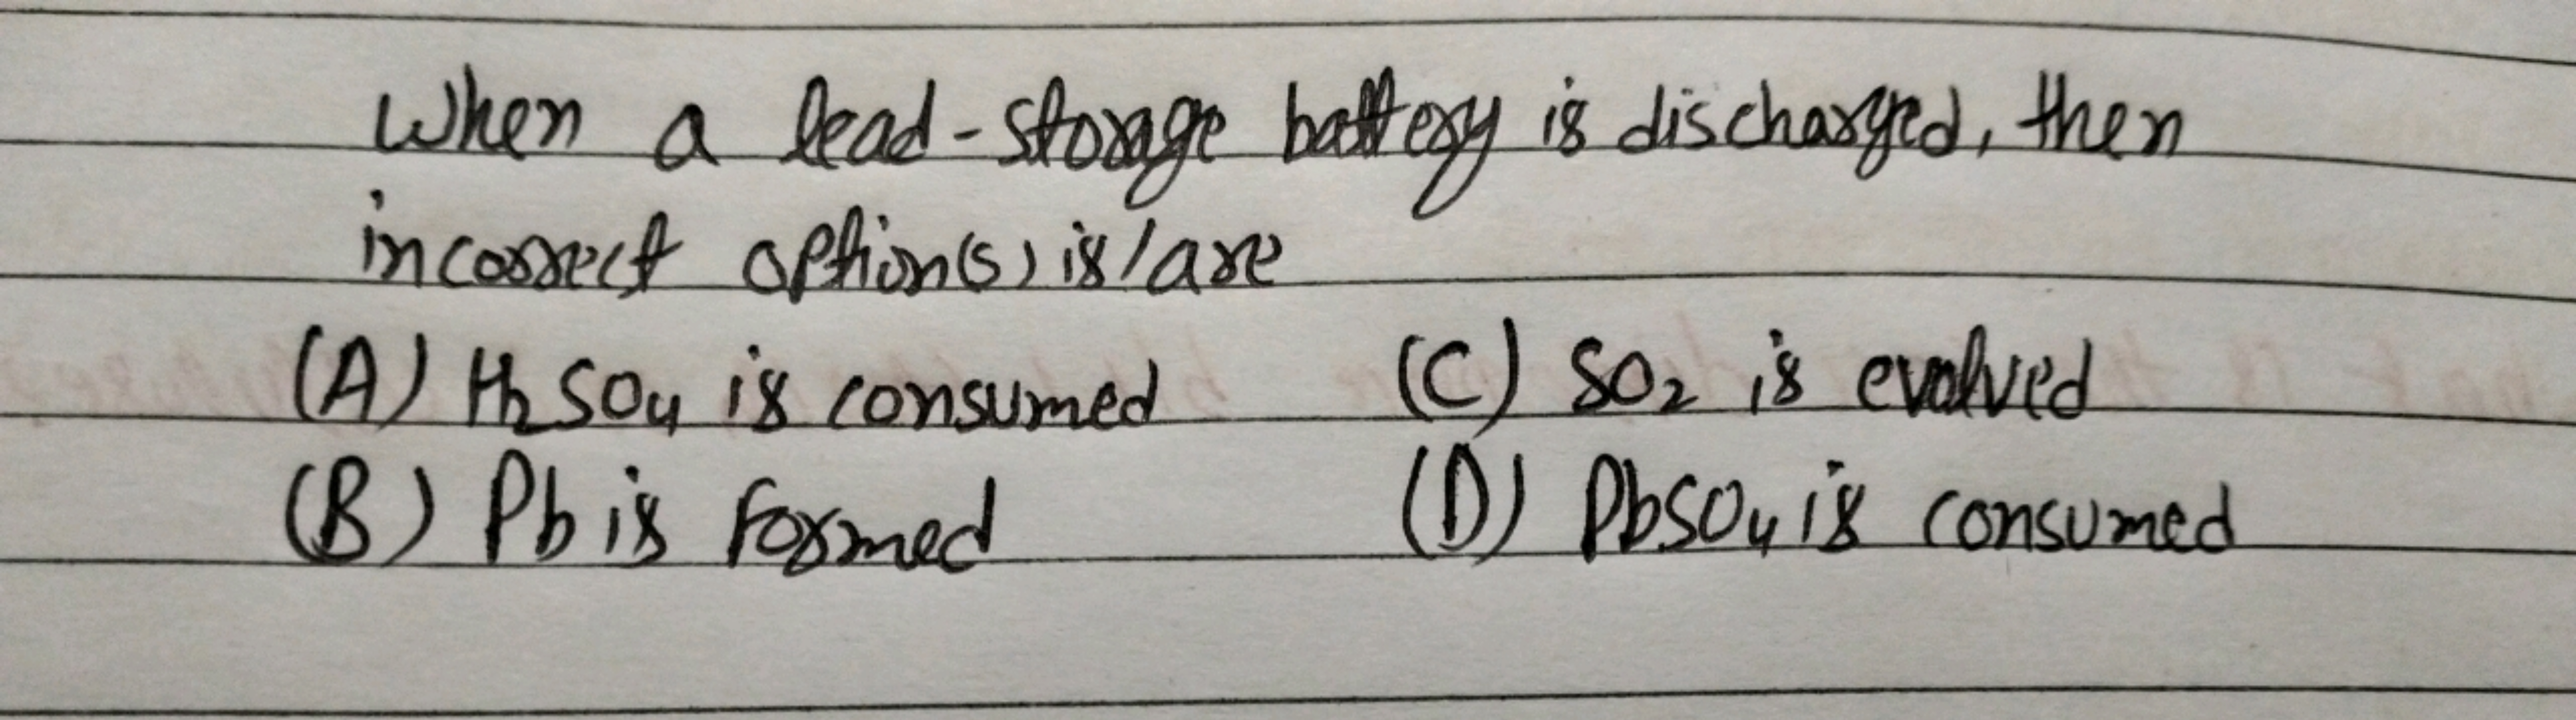 When a lead-storage battery is discharged, then
incorrect option(s) is/are
(A) H₂SO₄ is consumed (C) SO₂ is evolved
(B) Pb is formed (D) PbSO₄ is consumed